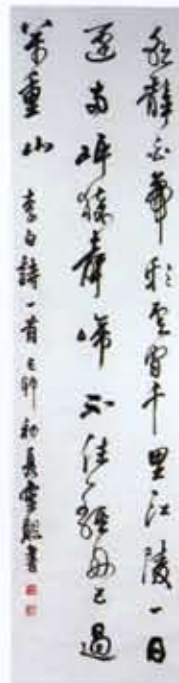 朝辭白帝彩雲間千里江陵一日
還兩岸猿聲啼不住輕舟已過
萬重山 李白詩一首 己卯初夏 書